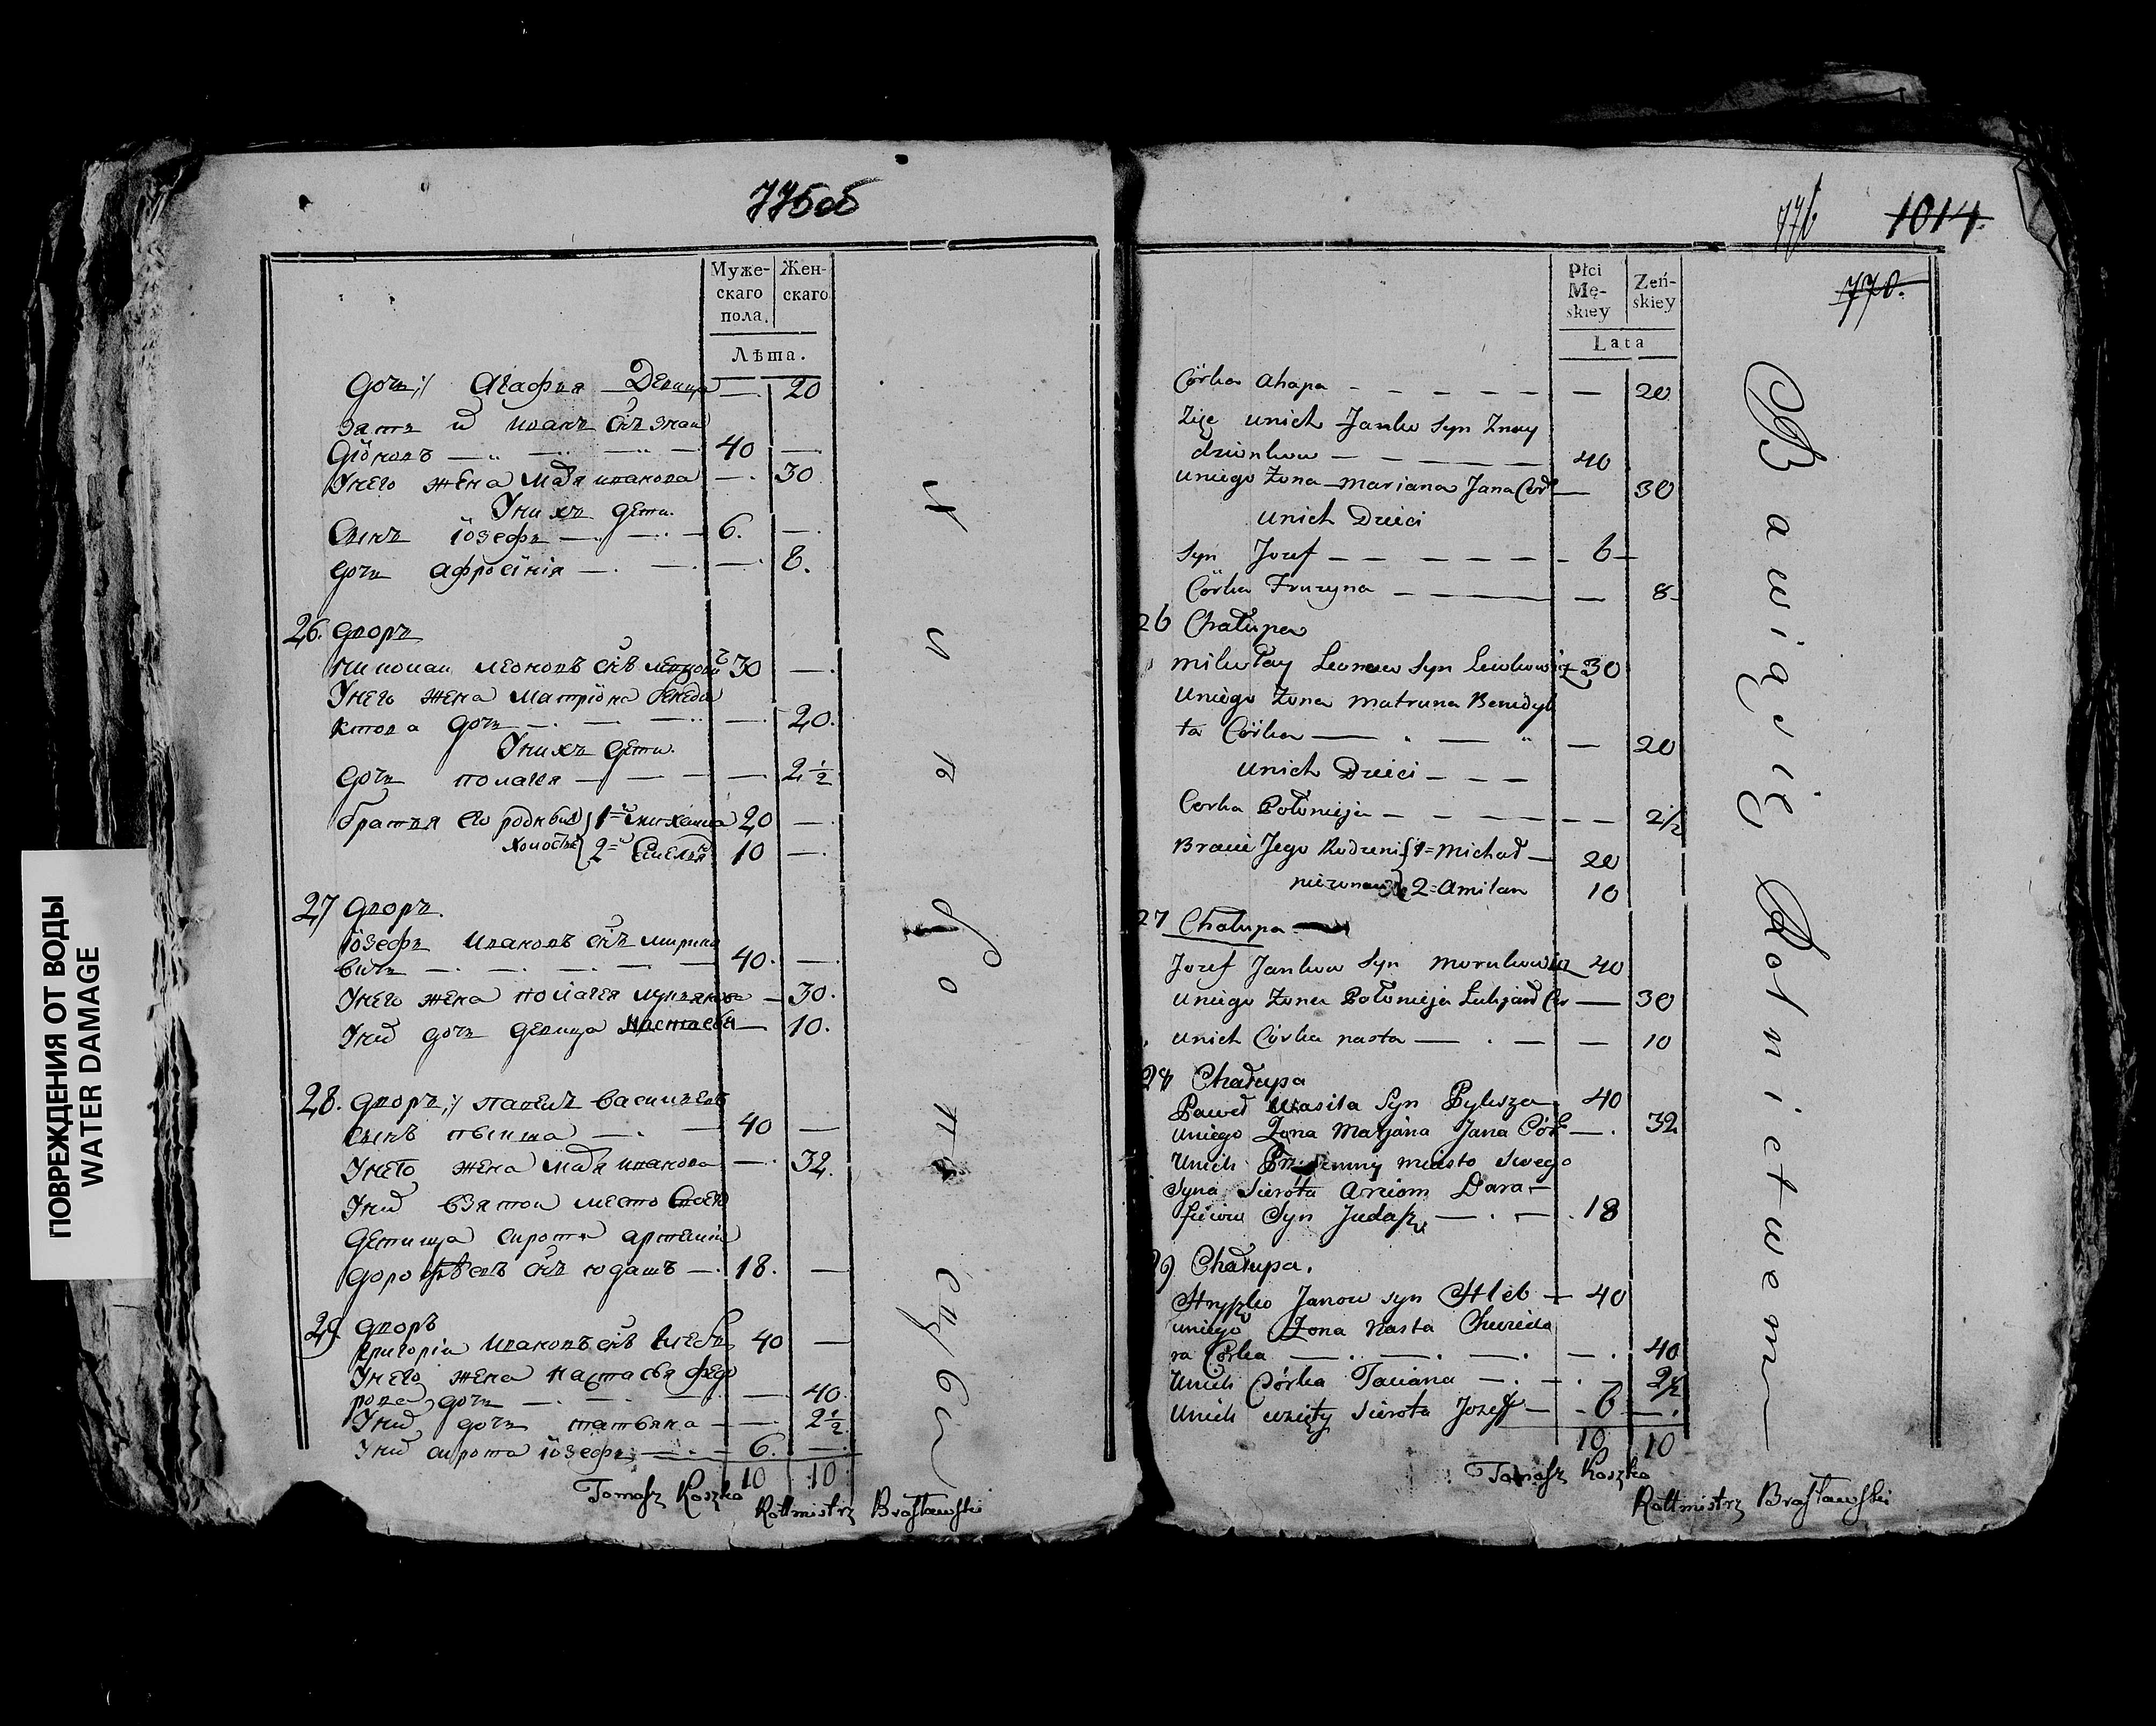 775об
Муже-
скаго
пола.
Жен-
скаго
Лѣта.
дочь :/ Агафия Девица — 20
зять и иванъ снъ знай
дiоновъ — 40 —
Унего жена мадя иванова — 30
Унихъ дети.
Сынъ iозефъ — 6. —
дочь афросiнiя — 8.
26. дворъ
николай леоновъ снъ 30 —
Унего жена матрiона бенеди
ктова дочь — 20.
Унихъ дети.
дочь полагея — 2 1/2
братья его родныя 1=й михаила 20 —
холосты 2=й Емельян 10 —
27 дворъ.
iозефъ ивановъ снъ
вичь — 40. —
Унего жена полагея — 30.
Уних дочь девица настасья — 10.
28. дворъ :/ павелъ васильевъ
сынъ 40 —
Унего жена мадя иванова — 32.
Уних взятой место своего
детища сирота артеми
дорофѣевъ снъ юдашъ — 18. —
29 дворъ
григорiи ивановъ снъ глебъ 40 —
Унего жена настасья федо
рова дочь — 40.
Уних дочь татьяна — 2 1/2
Уних сирота iозефъ — 6. —
10 10
Tomasz Koszko
Rottmistrz Brasławski
776
1014.
770.
Płci
Mę-
skiey
Zeń-
skiey
Lata
Córka Ahapa — — 20
Zięć unich Janko Syn Znay
dzionkow — 40
Uniego Zona Mariana Jana Cor — 30
Unich Dzieci
Syn Jozef — 6 —
Córka Fruzyna — — 8
26 Chałupa
Mikołay Leonow Syn Lewkowicz 30
Uniego Zona Matruna Benidyk
ta Córka — — 20
Unich Dzieci —
Corka Połonieja — — 2 1/2
Bracia Jego Rodzeni 1=Michał — 20
niezonaci 2=Amilan 10
27 Chalupa
Jozef Jankow Syn 40
Uniego Zona Połonieja Łukjana Cor — 30
Unich Córka nasta — — 10
28 Chałupa
Paweł Wasila Syn Pylisza 40
Uniego Zona Maryana Jana Córk — 32
Unich Przyiemny miasto swego
Syna Sierota Arciom Dara-
fieiow Syn Judasz — 18
29 Chałupa.
Hryszko Janow syn Hleb — 40
Uniego Zona Nasta Chwiedo
ra Corka — — 40
Unich Córka Taciana — — 2 1/2
Unich wzięty Sierota Jozeff — 6 —
10 10
Tomasz Koszko
Rottmistrz Brasławski
Bawią się Rolnictwem
ПОВРЕЖДЕНИЯ ОТ ВОДЫ
WATER DAMAGE